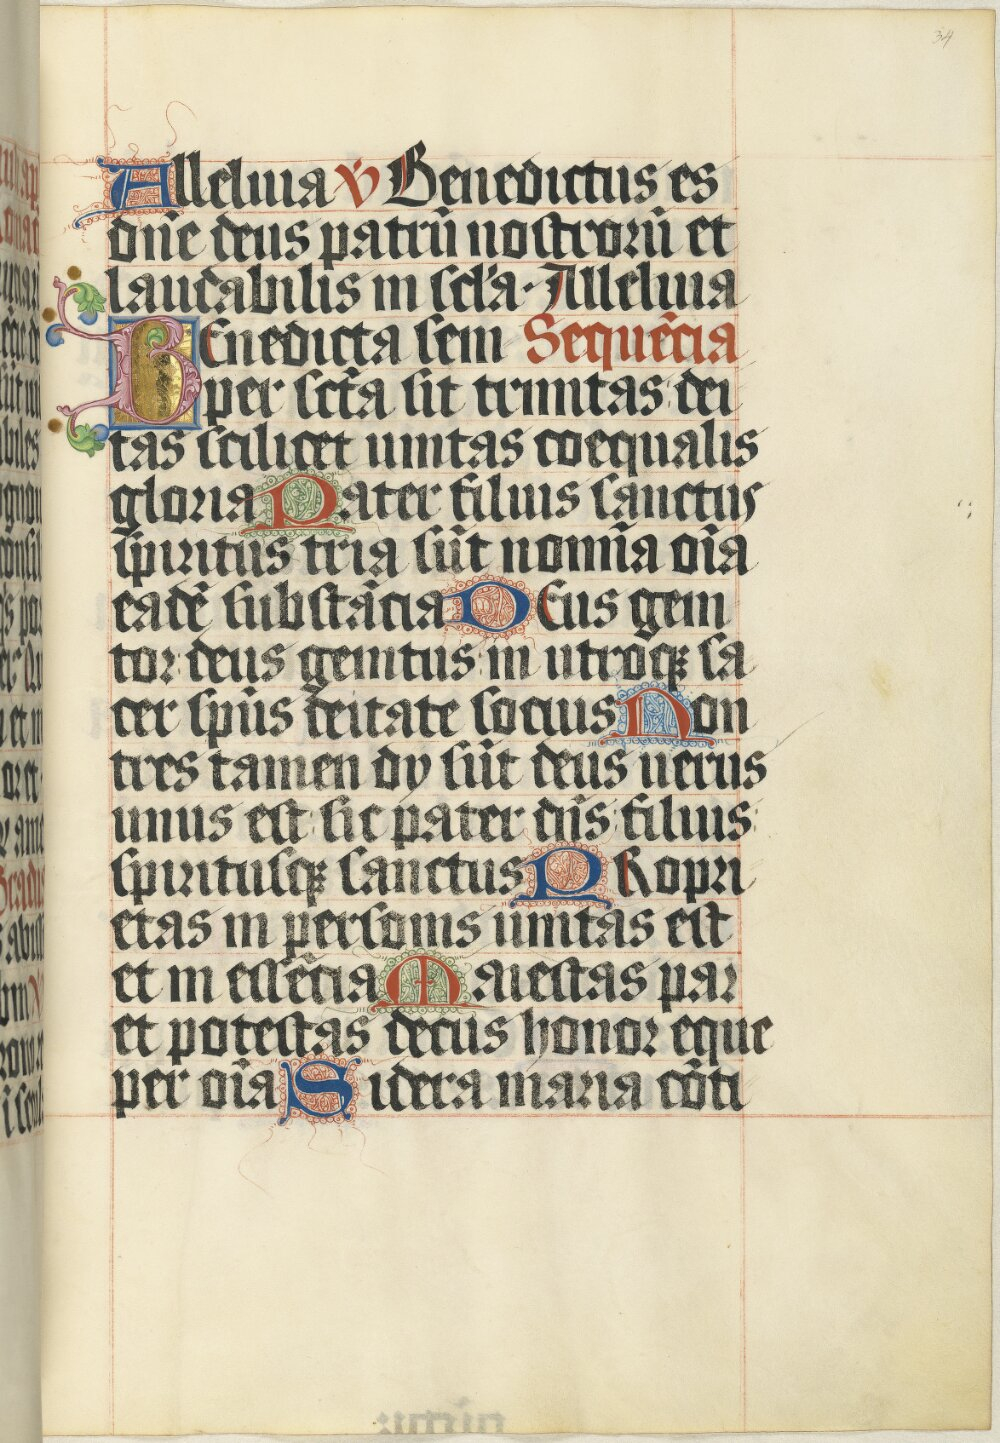 34
Alleluia v̇ Benedictus es
dn̄e deus patrū nostrorū et
laudabilis in scl̄a· Alleluia
Benedicta sem Sequēcia
per sct̄a sit trinitas dei
tas scilicet unitas coequalis
gloria Pater filius sanctus
spiritus tria sūt nomīa oīa
eadē substācia Deus geni
tor deus genitus in utroqꝫ sa
cer sp̄us deitate socius Non
tres tamen dy sūt deus uerus
unus est sic pater dn̄s filius
spiritusqꝫ sanctus PRopri
etas in personis unitas est
et in essēcia Maiestas par
et potestas decus honor eque
per oīa Sidera maria cōti